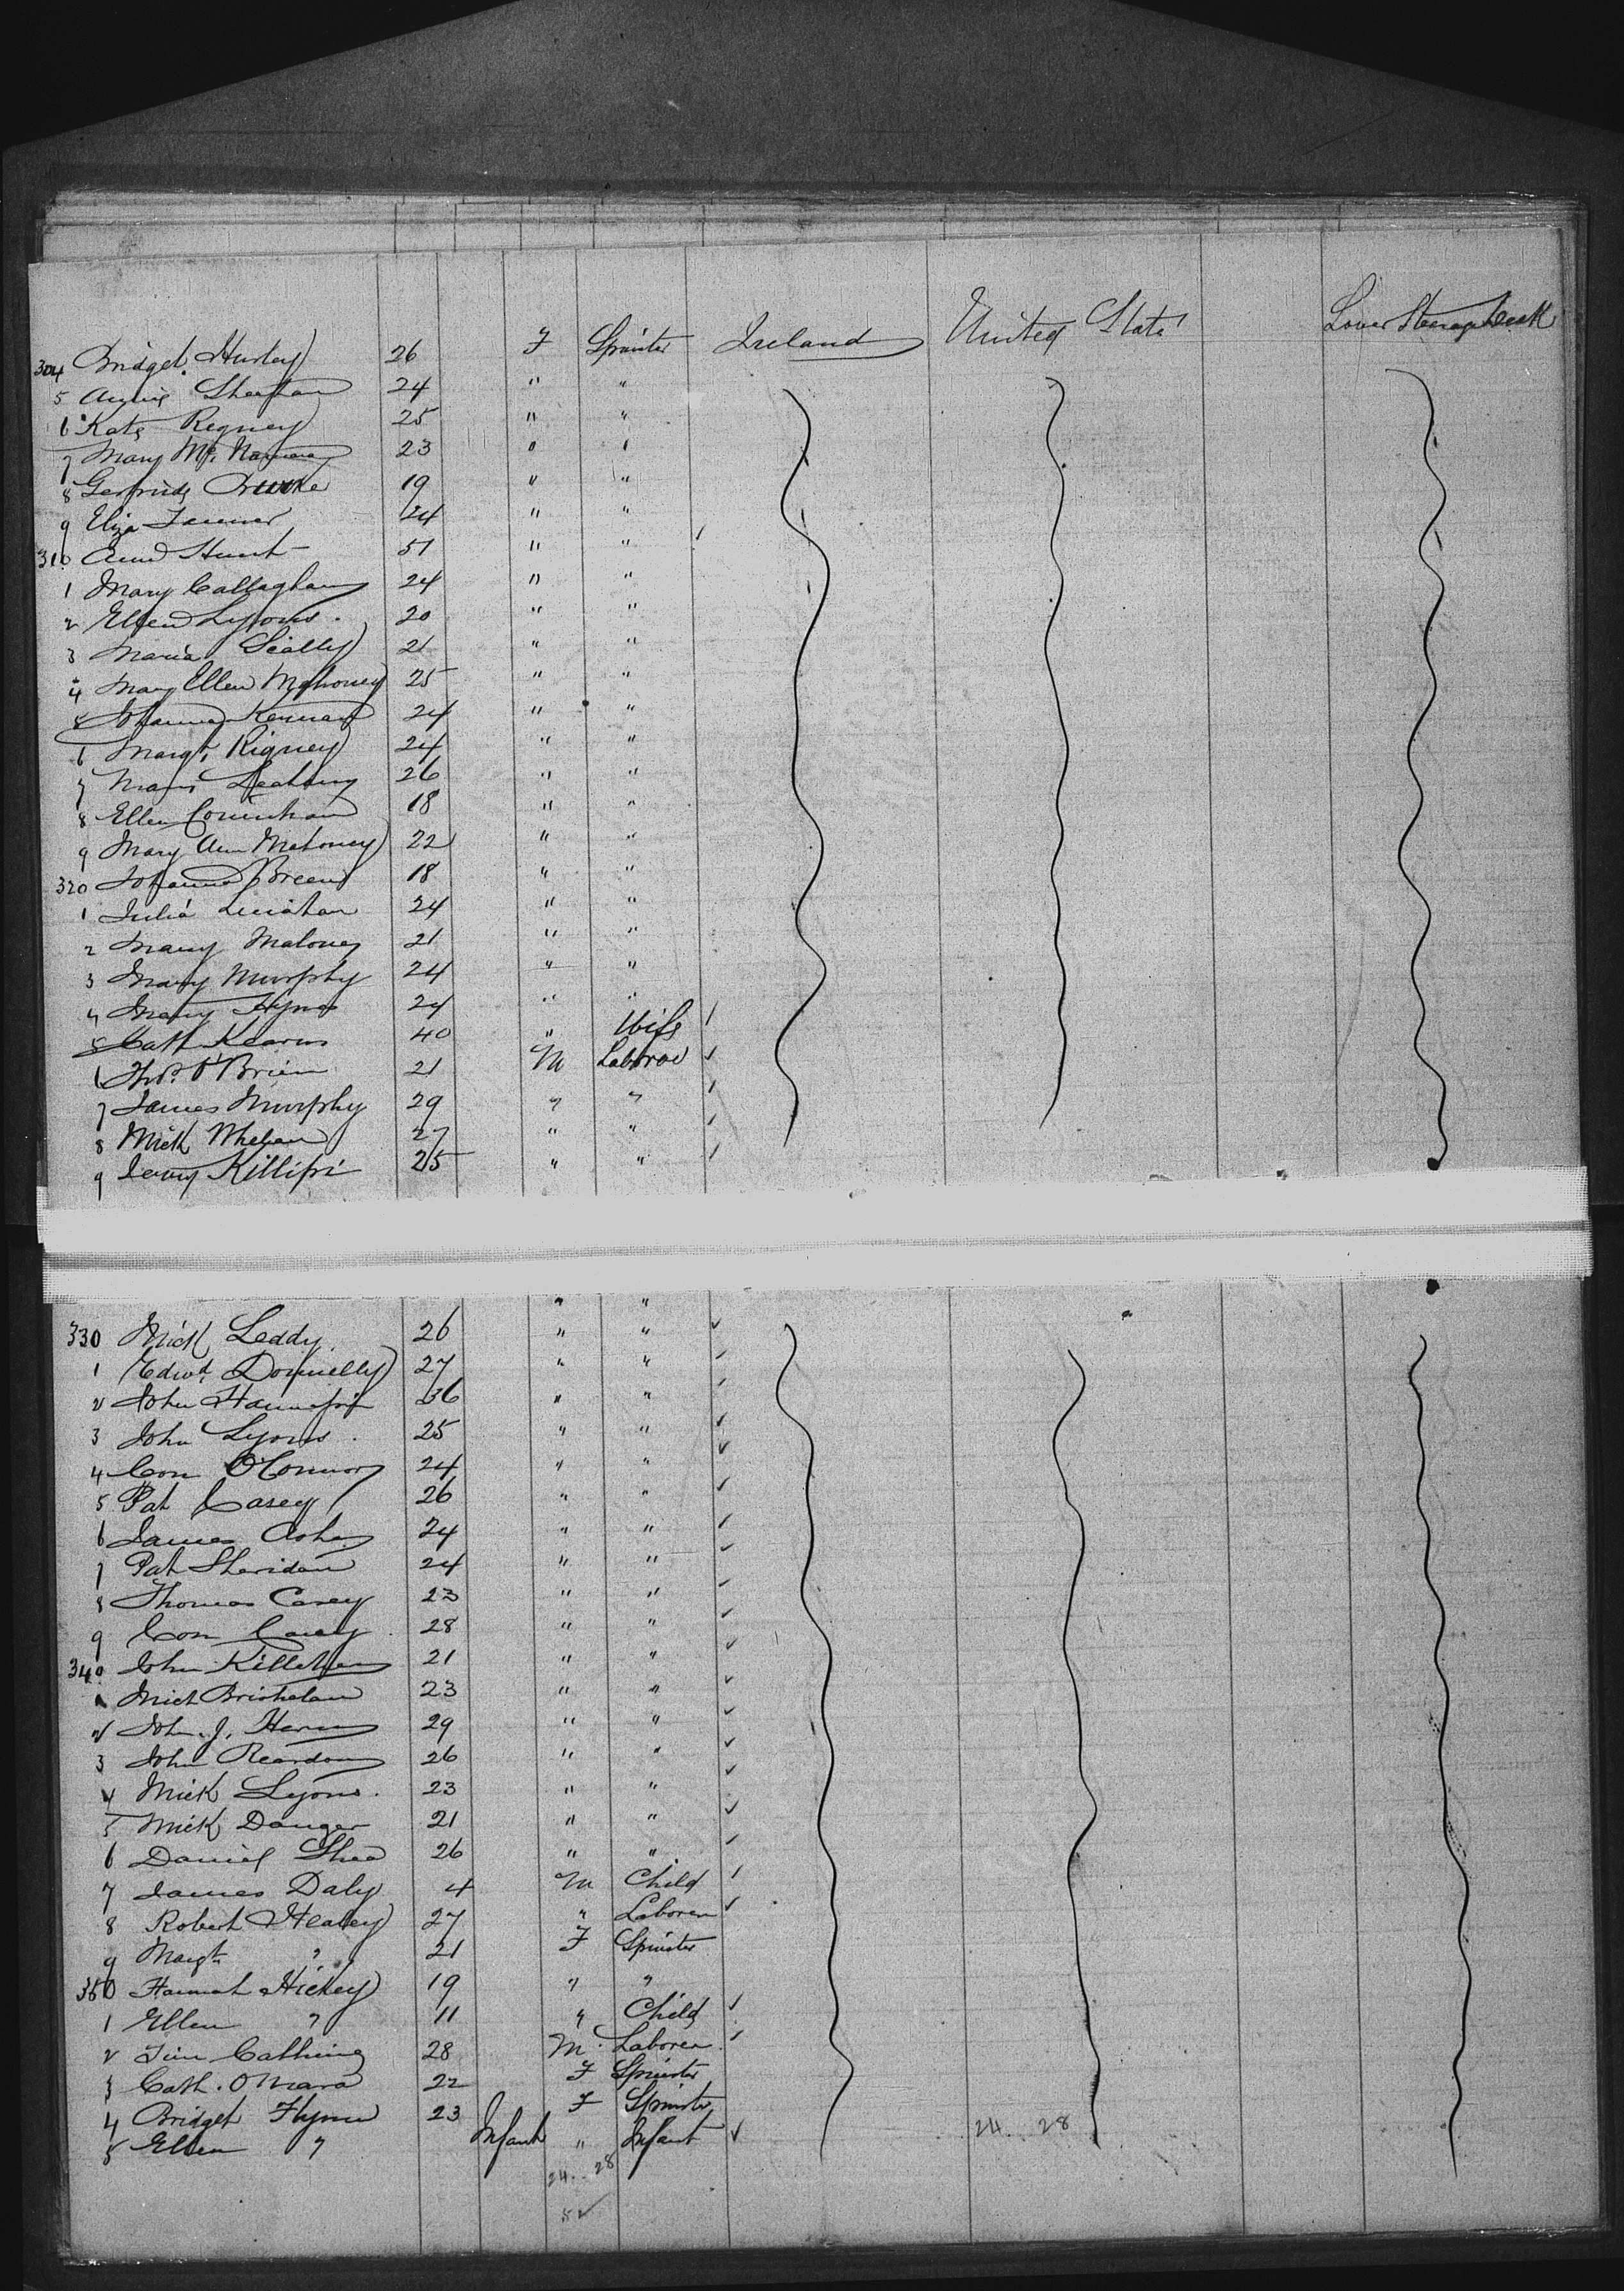 304 Bridget Hurley 26 F Spinster Ireland United State Lower Steerage Deck
5 Annie Sheehan 24 " "
6 Kate Regney 25 " "
7 Mary Mc Namara 23 " "
8 Gertrude 19 " "
9 Eliza 24 " "
310 Ann Hunt 51 " "
1 Mary Callaghan 24 " "
2 Ellen Lyons. 20 " "
3 Maria Scally 21 " "
4 Mary Ellen Mahoney 25 " "
5 Johanna 24 " "
6 Margt. Rigney 24 " "
7 Leahony 26 " "
8 Ellen 18 " "
9 Mary Ann Mahoney 22 " "
320 Johanna Breen 18 " "
1 Julia 24 " "
2 Mary Maloney 21 " "
3 Mary Murphy 24 " "
4 Mary Hynes 24 " "
5 Cath Kearns 40 " Wife
6 Thos. O'Brien 21 M Laborer
7 James Murphy 29 " "
8 Mick Whelan 27 " "
9 Killifri 25 " "
" "
330 Mick Leddy 26 " "
1 Edwd. Donnelly 27 " "
2 John 36 " "
3 John Lyons. 25 " "
4 Con O'Connor 24 " "
5 Pat Casey 26 " "
6 James Ashe 24 " "
7 Pat Sheridan 24 " "
8 Thomas Casey 23 " "
9 Con Casey 28 " "
340 John 21 " "
1 Mich 23 " "
2 John. J. 29 " "
3 John Reardon 26 " "
4 Mick Lyons. 23 " "
5 Mick Danger 21 " "
6 Daniel Shea 26 " "
7 James Daly 4 M Child
8 Robert Healey 27 " Laborer
9 Margt " 21 F Spinster
350 Hannah Hickey 19 " "
1 Ellen " 11 " Child
2 Tim 28 M. Laborer.
3 Cath. O Mara 22 F Spinster
4 Bridget Flynn 23 F Spinster
5 Ellen " Infant " Infant 24.. 28
24.. 28
52